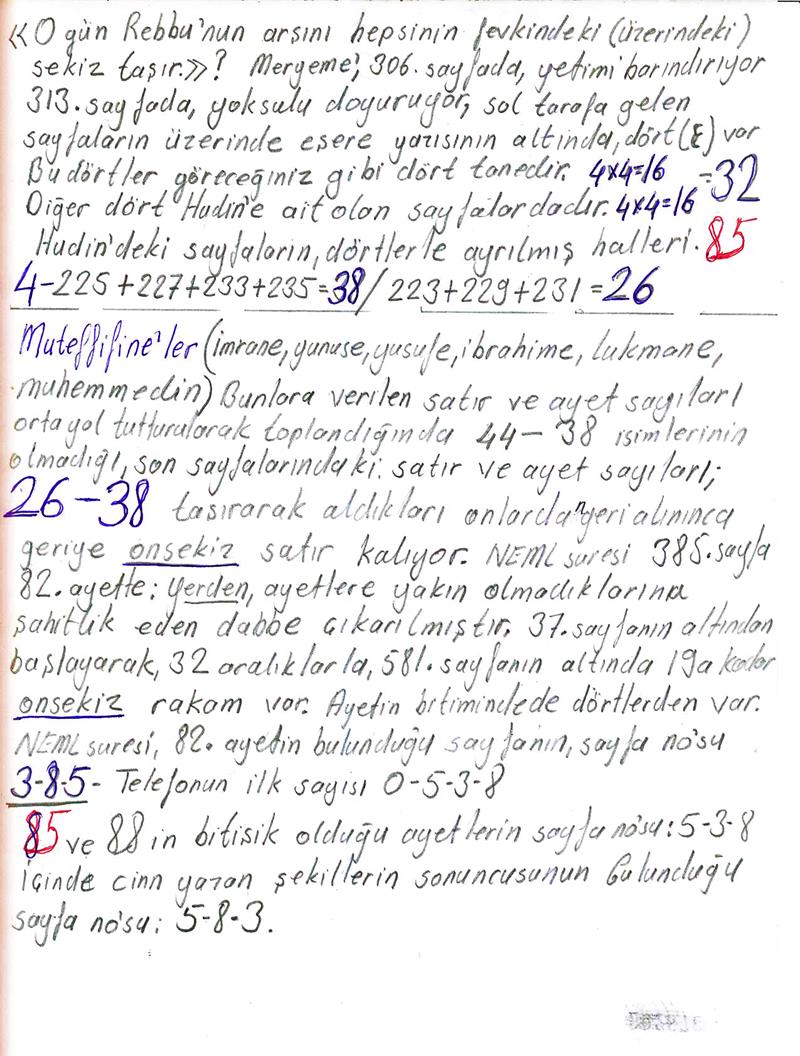 «O gün Rebbu'nun arşını hepsinin fevkindeki (üzerindeki)
sekiz taşır.»? Meryeme', 306. sayfada, yetimi barındırıyor
313. sayfada, yoksulu doyuruyor, sol tarafa gelen
sayfaların üzerinde esere yazısının altında, dört (٤) var
Bu dörtler göreceğiniz gibi dört tanedir. 4x4=16 =32
Diğer dört Hudin'e ait olan sayfalardadır. 4x4=16
Hudin'deki sayfaların, dörtlerle ayrılmış halleri. 85
4-225+227+233+235=38/223+229+231=26
Muteffifine'ler (imrane, yunuse, yusufe, ibrahime, lukmane,
muhemmedin) Bunlara verilen satır ve ayet sayıları
orta yol tutturularak toplandığında 44-38 isimlerinin
olmadığı, son sayfalarındaki satır ve ayet sayıları;
26-38 taşırarak aldıkları onlardan geri alınınca
geriye onsekiz satır kalıyor. NEML suresi 385. sayfa
82. ayette: yerden, ayetlere yakın olmadıklarına
şahitlik eden dabbe çıkarılmıştır. 37. sayfanın altından
başlayarak, 32 aralıklarla, 581. sayfanın altında 19a kadar
onsekiz rakam var. Ayetin bitimindede dörtlerden var.
NEML suresi, 82. ayetin bulunduğu sayfanın, sayfa no'su
3-8-5- Telefonun ilk sayısı 0-5-3-8
85 ve 88 in bitişik olduğu ayetlerin sayfa no'su: 5-3-8
İçinde cinn yazan şekillerin sonuncusunun bulunduğu
sayfa no'su: 5-8-3.